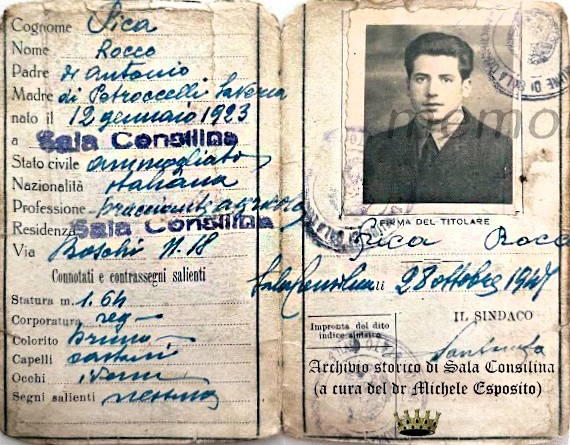 Cognome Pica
Nome Rocco
Padre di Antonio
Madre di Petroccelli
nato il 12 gennaio 1923
a Sala Consilina
Stato civile ammogliato
Nazionalità italiana
Professione bracciante agricolo
Residenza Sala Consilina
Via Boschi N. 18
Connotati e contrassegni salienti
Statura m. 1.64
Corporatura reg
Colorito Bruno
Capelli castani
Occhi
Segni salienti nessuno
FIRMA DEL TITOLARE
Pica Rocco
Sala Consilina li 28 ottobre 1947
Impronta del dito
indice sinistro
IL SINDACO
Archivio storico di Sala Consilina
(a cura del dr Michele Esposito)